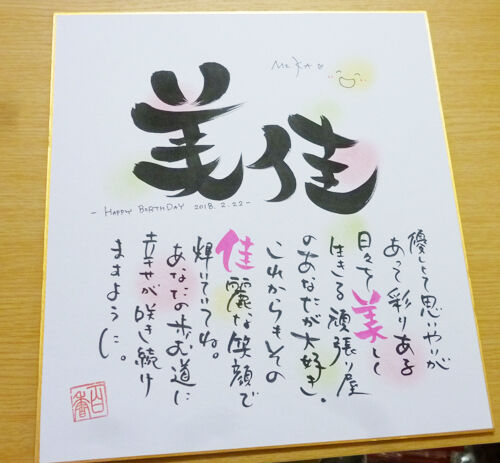 美佳
Mika
- HAPPY BIRTHDAY 2018.2.22 -
優しくて思いやりが
あって彩りある
日々を美しく
生きる頑張り屋
のあなたが大好き。
これからもその
佳麗な笑顔で
輝いていてね。
あなたの歩む道に
幸せが咲き続け
ますように。